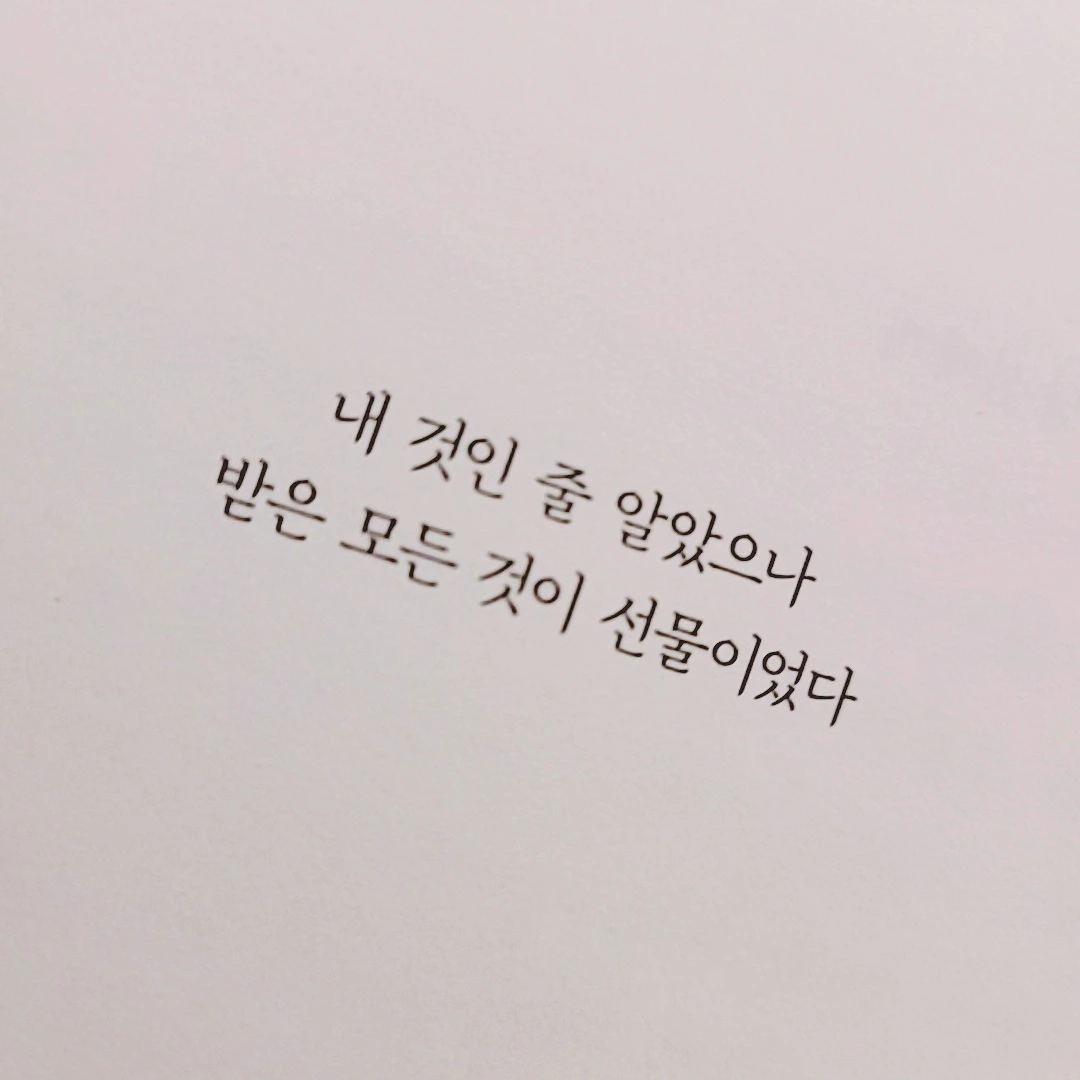 내 것인 줄 알았으나
받은 모든 것이 선물이었다